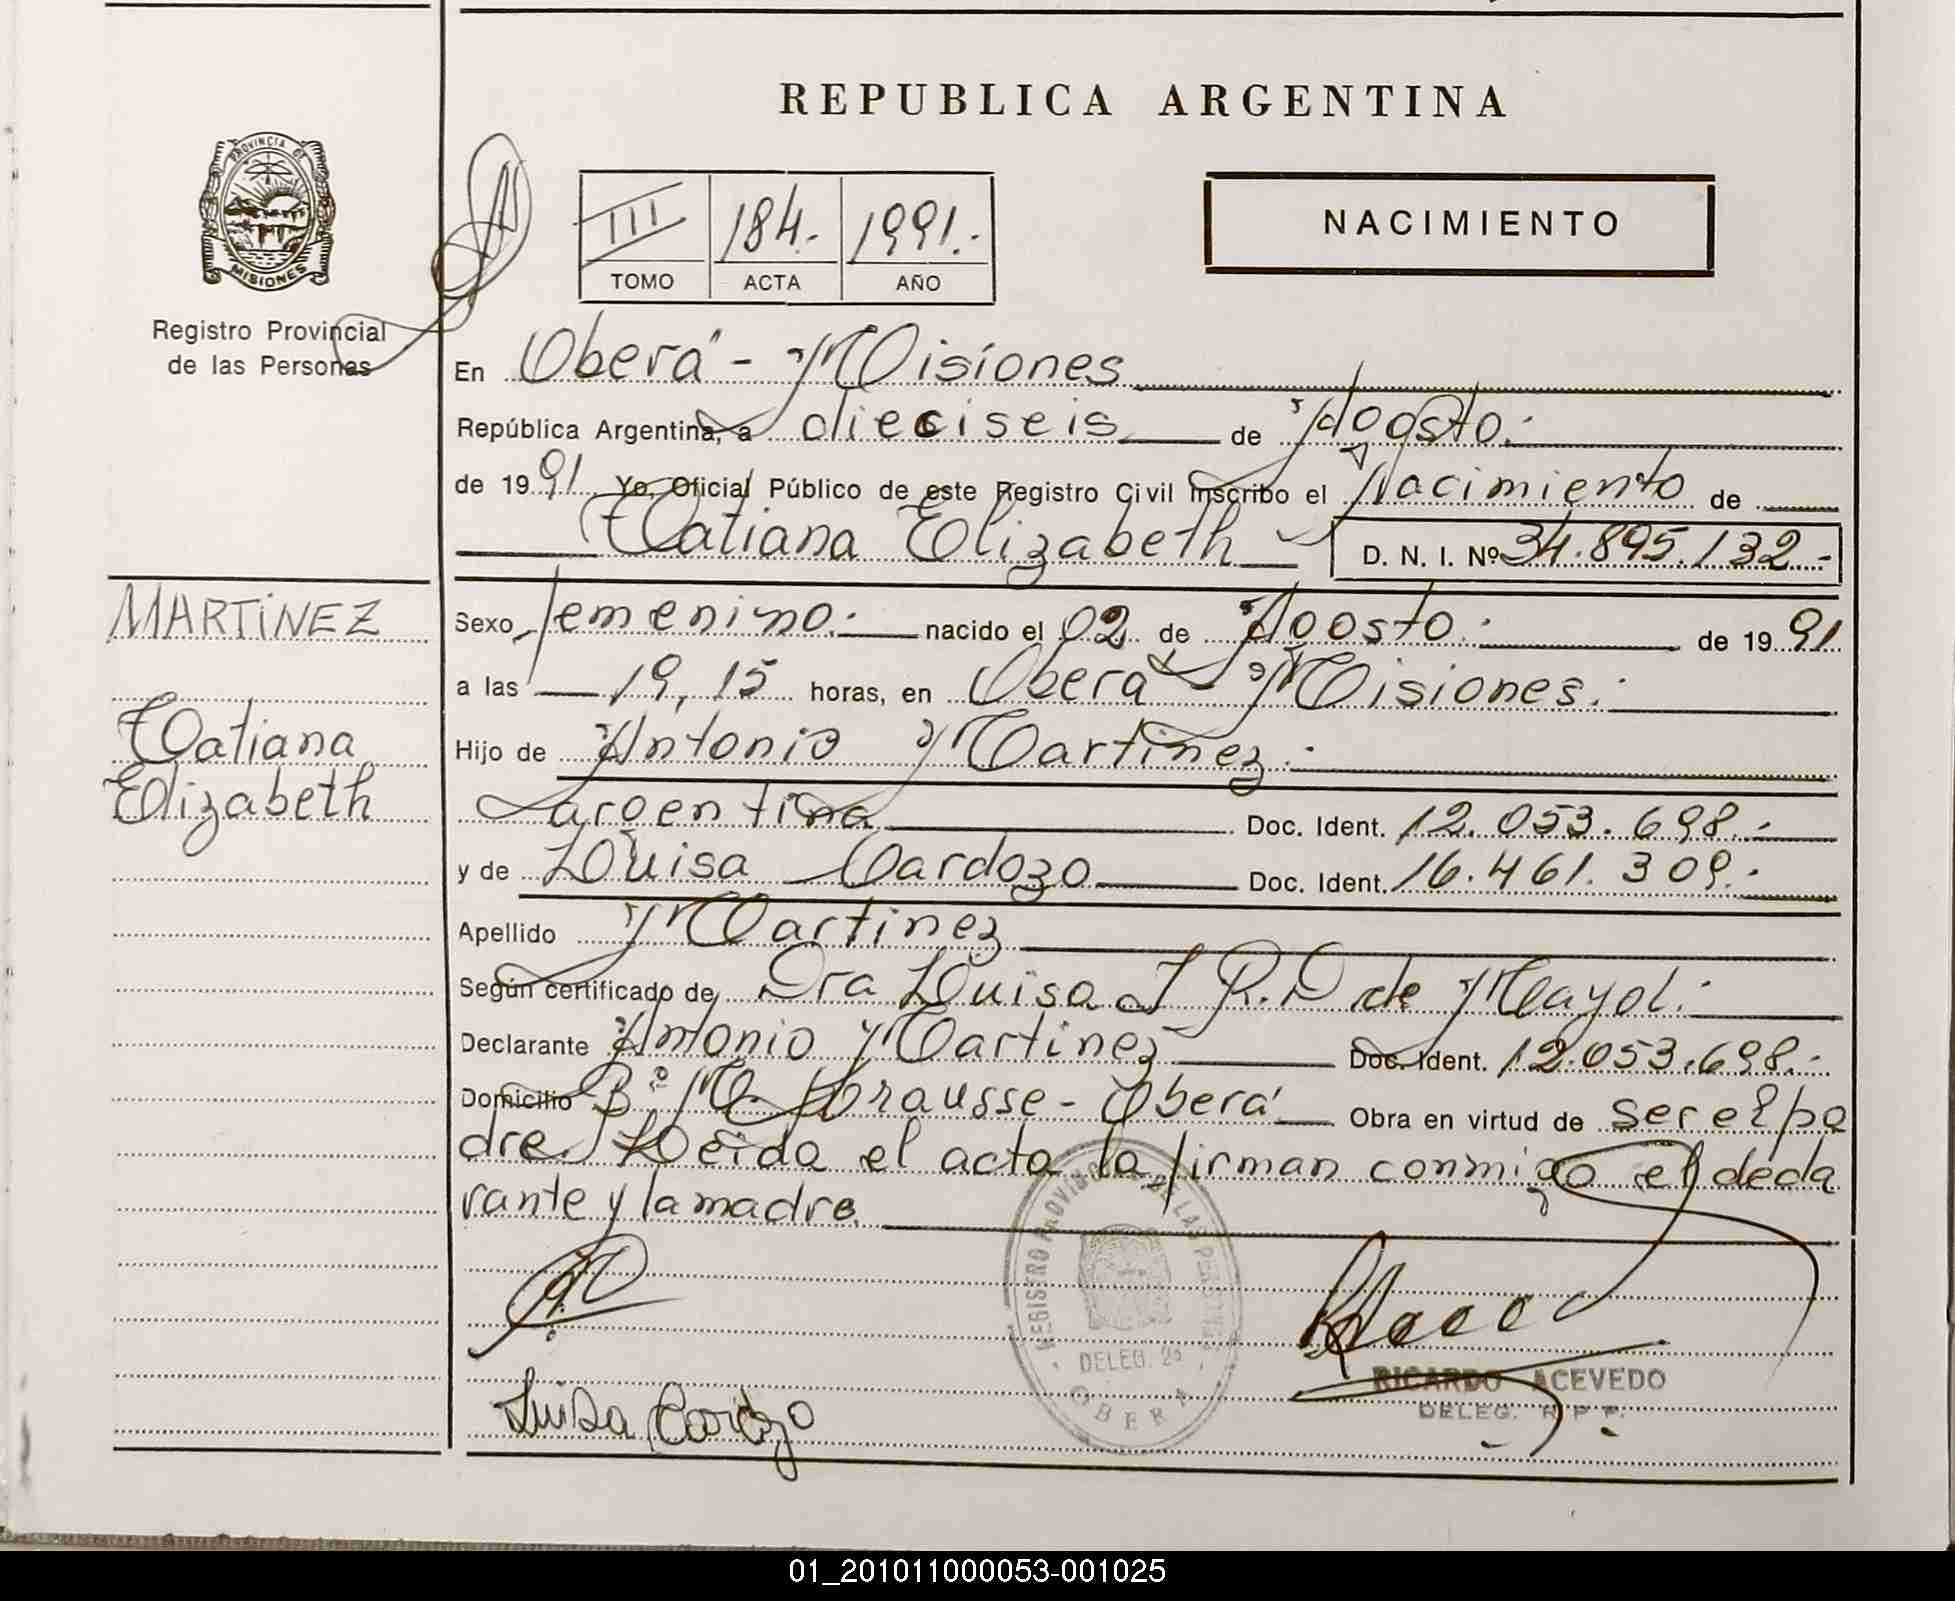 REPUBLICA ARGENTINA
PROVINCIA DE
MISIONES
Registro Provincial
de las Personas
III 184.- 1991.-
TOMO ACTA AÑO
NACIMIENTO
En Oberá - Misiones
República Argentina, a dieciseis de Agosto.-
de 1991 Yo, Oficial Público de este Registro Civil inscribo el Nacimiento de
Tatiana Elizabeth D. N. I. Nº 34.895.132.-
MARTINEZ
Tatiana
Elizabeth
Sexo femenino.- nacido el 02 de Agosto.- de 1991
a las 19,15 horas, en Oberá - Misiones.-
Hijo de Antonio Martinez.-
argentina Doc. Ident. 12.053.698.-
y de Luisa Cardozo Doc. Ident. 16.461.309.-
Apellido Martinez
Según certificado de Dra Luisa J R.D de Mayol.-
Declarante Antonio Martinez Doc. Ident. 12.053.698.-
Domicilio Bº M. Krausse - Oberá Obra en virtud de ser el pa
dre. Leida el acta la firman conmigo el decla
rante y la madre.
REGISTRO PROVINCIAL DE LAS PERSONAS
DELEG.
OBERA
Luisa Cardozo
RICARDO ACEVEDO
DELEG. R P P.
01_201011000053-001025